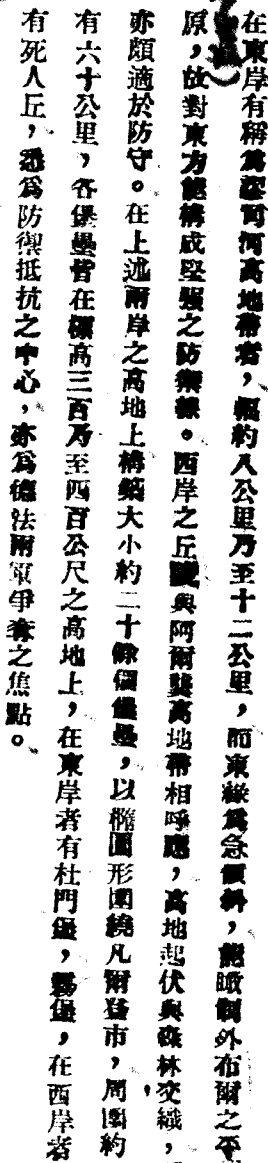 在東岸有稱為茲阿河高地帶者，幅約八公里乃至十二公里，而東緣為急傾斜，能瞰制外布爾之平
原，故對東方能構成堅強之防禦線。西岸之丘陵與阿爾龔高地帶相呼應，高地起伏與森林交織，
亦頗適於防守。在上述兩岸之高地上構築大小約二十餘個堡壘，以橢圓形圍繞凡爾登市，周圍約
有六十公里，各堡壘皆在標高三百乃至四百公尺之高地上，在東岸者有杜門堡，鄂堡，在西岸者
有死人丘，悉為防禦抵抗之中心，亦為德法兩軍爭奪之焦點。